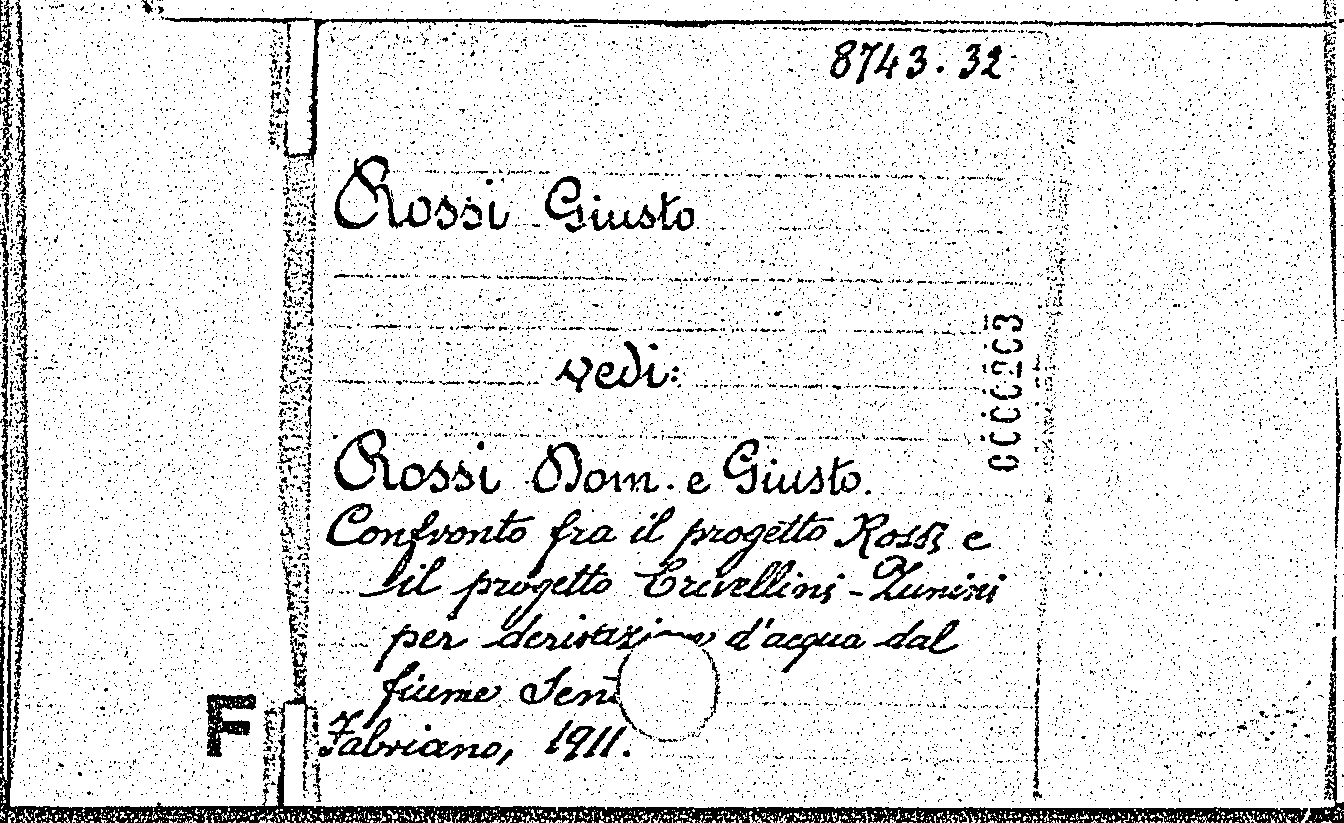 8743.32
Rossi Giusto
vedi:
0000203
Rossi Dom. e Giusto.
Confronto fra il progetto Rossi e
il progetto Crivellini-Zunini
per derivazione d'acqua dal
fiume
Fabriano, 1911.
F